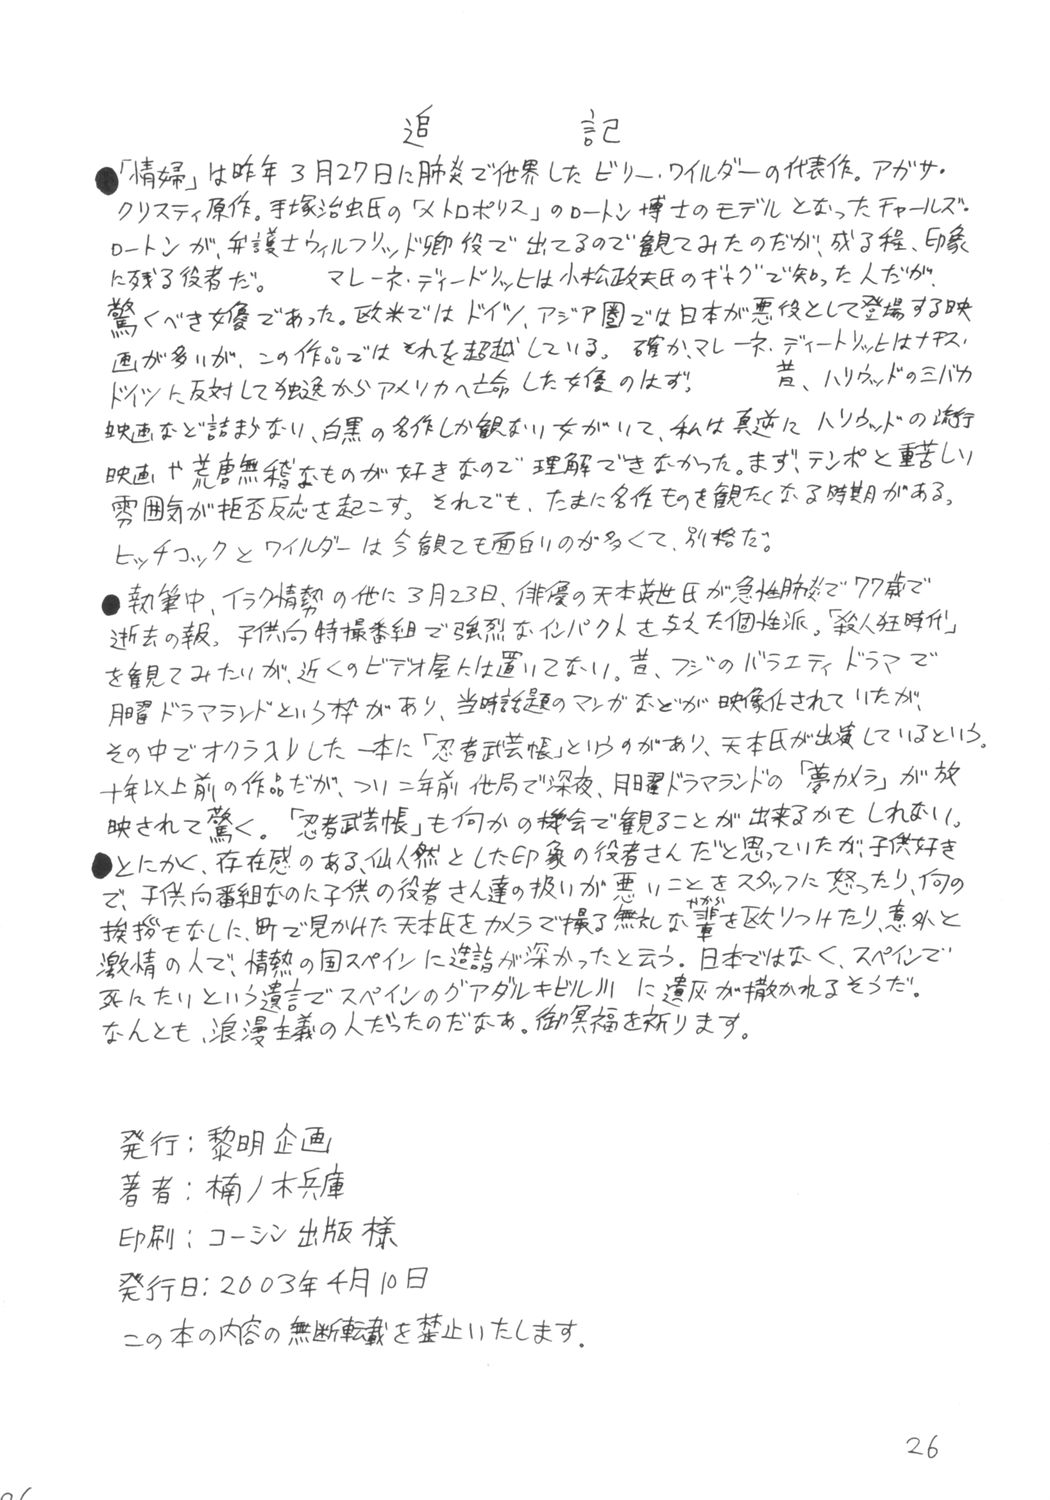 追記
●「情婦」は昨年3月27日に肺炎で他界したビリー・ワイルダーの代表作。アガサ・
クリスティ原作。手塚治虫氏の「メトロポリス」のロートン博士のモデルとなったチャールズ・
ロートンが、弁護士ウィルフリッド卿役で出てるので観てみたのだが、成る程、印象
に残る役者だ。 マレーネ・ディードリッヒは小松政夫氏のギャグで知った人だが、
驚くべき女優であった。欧米ではドイツ、アジア圏では日本が悪役として登場する映
画が多いが、この作品ではそれを超越している。確か、マレーネ・ディートリッヒはナチス・
ドイツに反対して独逸からアメリカへ亡命した女優のはず。 昔、ハリウッドのミバカ
映画など詰まらない、白黒の名作しか観ない女がいて、私は真逆にハリウッドの流行
映画や荒唐無稽なものが好きなので理解できなかった。まず、テンポと重苦しい
雰囲気が拒否反応を起こす。それでも、たまに名作ものを観たくなる時期がある。
ヒッチコックとワイルダーは今観ても面白いのが多くて、別格だ。
●執筆中、イラク情勢の他に3月23日、俳優の天本英世氏が急性肺炎で77歳で
逝去の報。子供向特撮番組で強烈なインパクトを与えた個性派。「殺人狂時代」
を観てみたいが、近くのビデオ屋には置いてない。昔、フジのバラエティドラマで
月曜ドラマランドという枠があり、当時話題のマンガなどが映像化されていたが、
その中でオクラ入りした一本に「忍者武芸帳」というのがあり、天本氏が出演しているという。
十年以上前の作品だが、つい二年前他局で深夜、月曜ドラマランドの「夢カメラ」が放
映されて驚く。「忍者武芸帳」も何かの機会で観ることが出来るかもしれない。
●とにかく、存在感のある、仙人然とした印象の役者さんだと思っていたが、子供好き
で、子供向番組なのに子供の役者さん達の扱いが悪いことをスタッフに怒ったり、何の
挨拶もなしに、町で見かけた天本氏をカメラで撮る無礼な輩を殴りつけたり、意外と
激情の人で、情熱の国スペインに造詣が深かったと云う。日本ではなく、スペインで
死にたいという遺言でスペインのグアダルキビル川に遺灰が撒かれるそうだ。
なんとも、浪漫主義の人だったのだなあ。御冥福を祈ります。
発行:黎明企画
著者:楠ノ木兵庫
印刷:コーシン出版様
発行日:2003年4月10日
この本の内容の無断転載を禁止いたします。
26